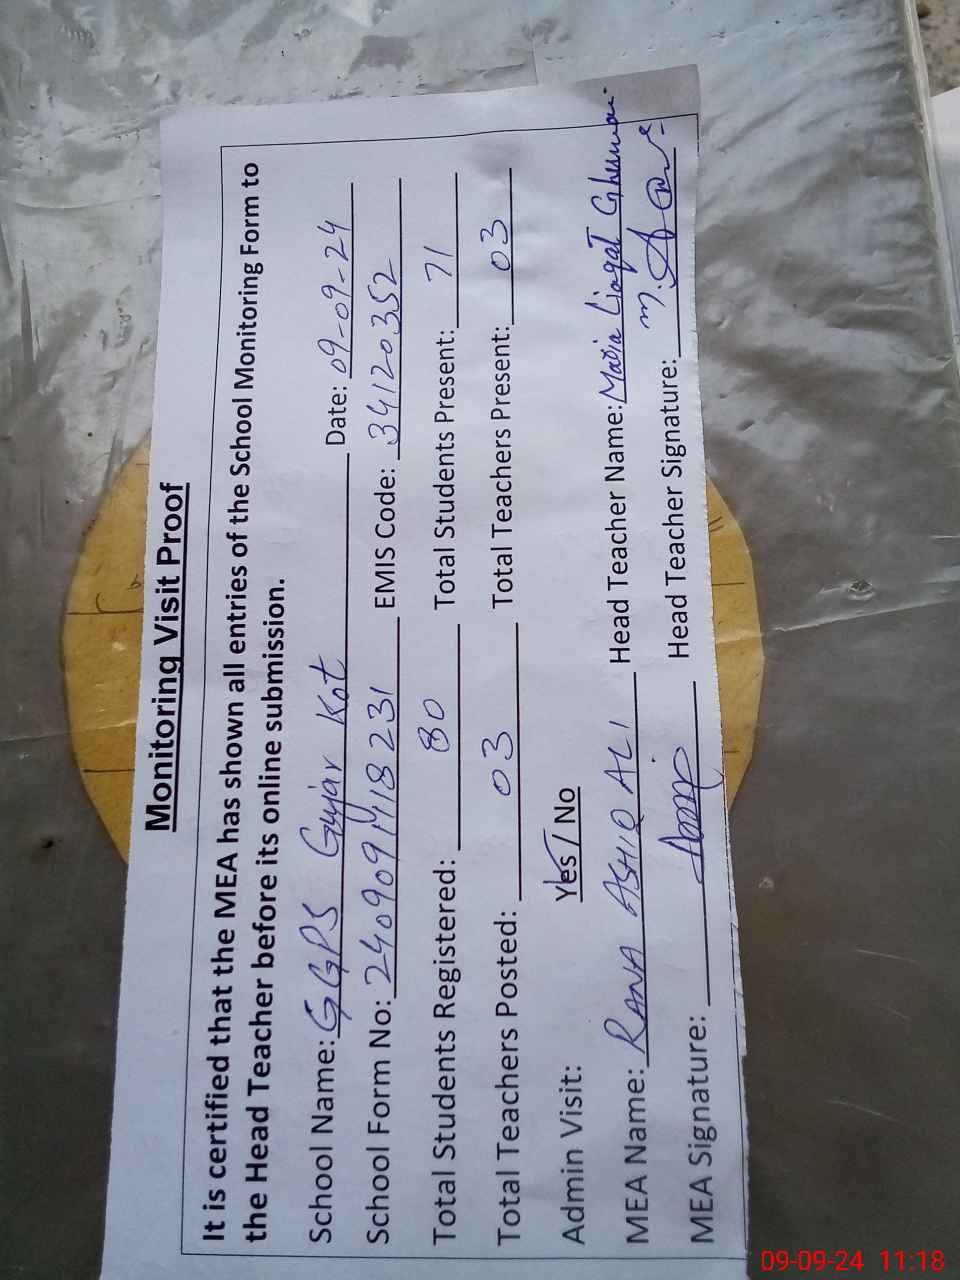 Monitoring Visit Proof
It is certified that the MEA has shown all entries of the School Monitoring Form to
the Head Teacher before its online submission.
School Name: GGPS Gujar Kot Date: 09-09-24
School Form No: 240909 118231 EMIS Code: 34120352
Total Students Registered: 80 Total Students Present: 71
Total Teachers Posted: 03 Total Teachers Present: 03
Admin Visit: Yes / No
MEA Name: RANA ASHIQ ALI Head Teacher Name: Maria Liaqat
MEA Signature: Head Teacher Signature:
09-09-24 11:18